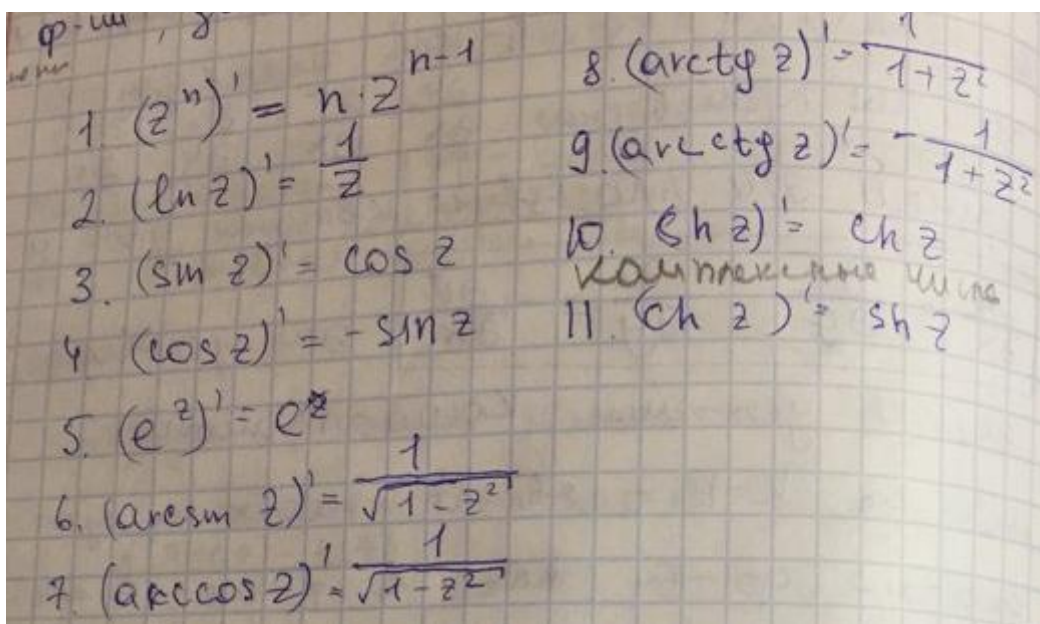 ф-ии,
1. (z^n)' = n·z^{n-1}
2. (ln z)' = 1/z
3. (sin z)' = cos z
4 (cos z)' = -sin z
5. (e^z)' = e^z
6. (arcsin z)' = 1/√(1-z²)
7. (arccos z)' = 1/√(1-z²)
8. (arctg z)' = 1/(1+z²)
9. (arcctg z)' = -1/(1+z²)
10. (sh z)' = ch z
комплексные числа
11. (ch z)' = sh z